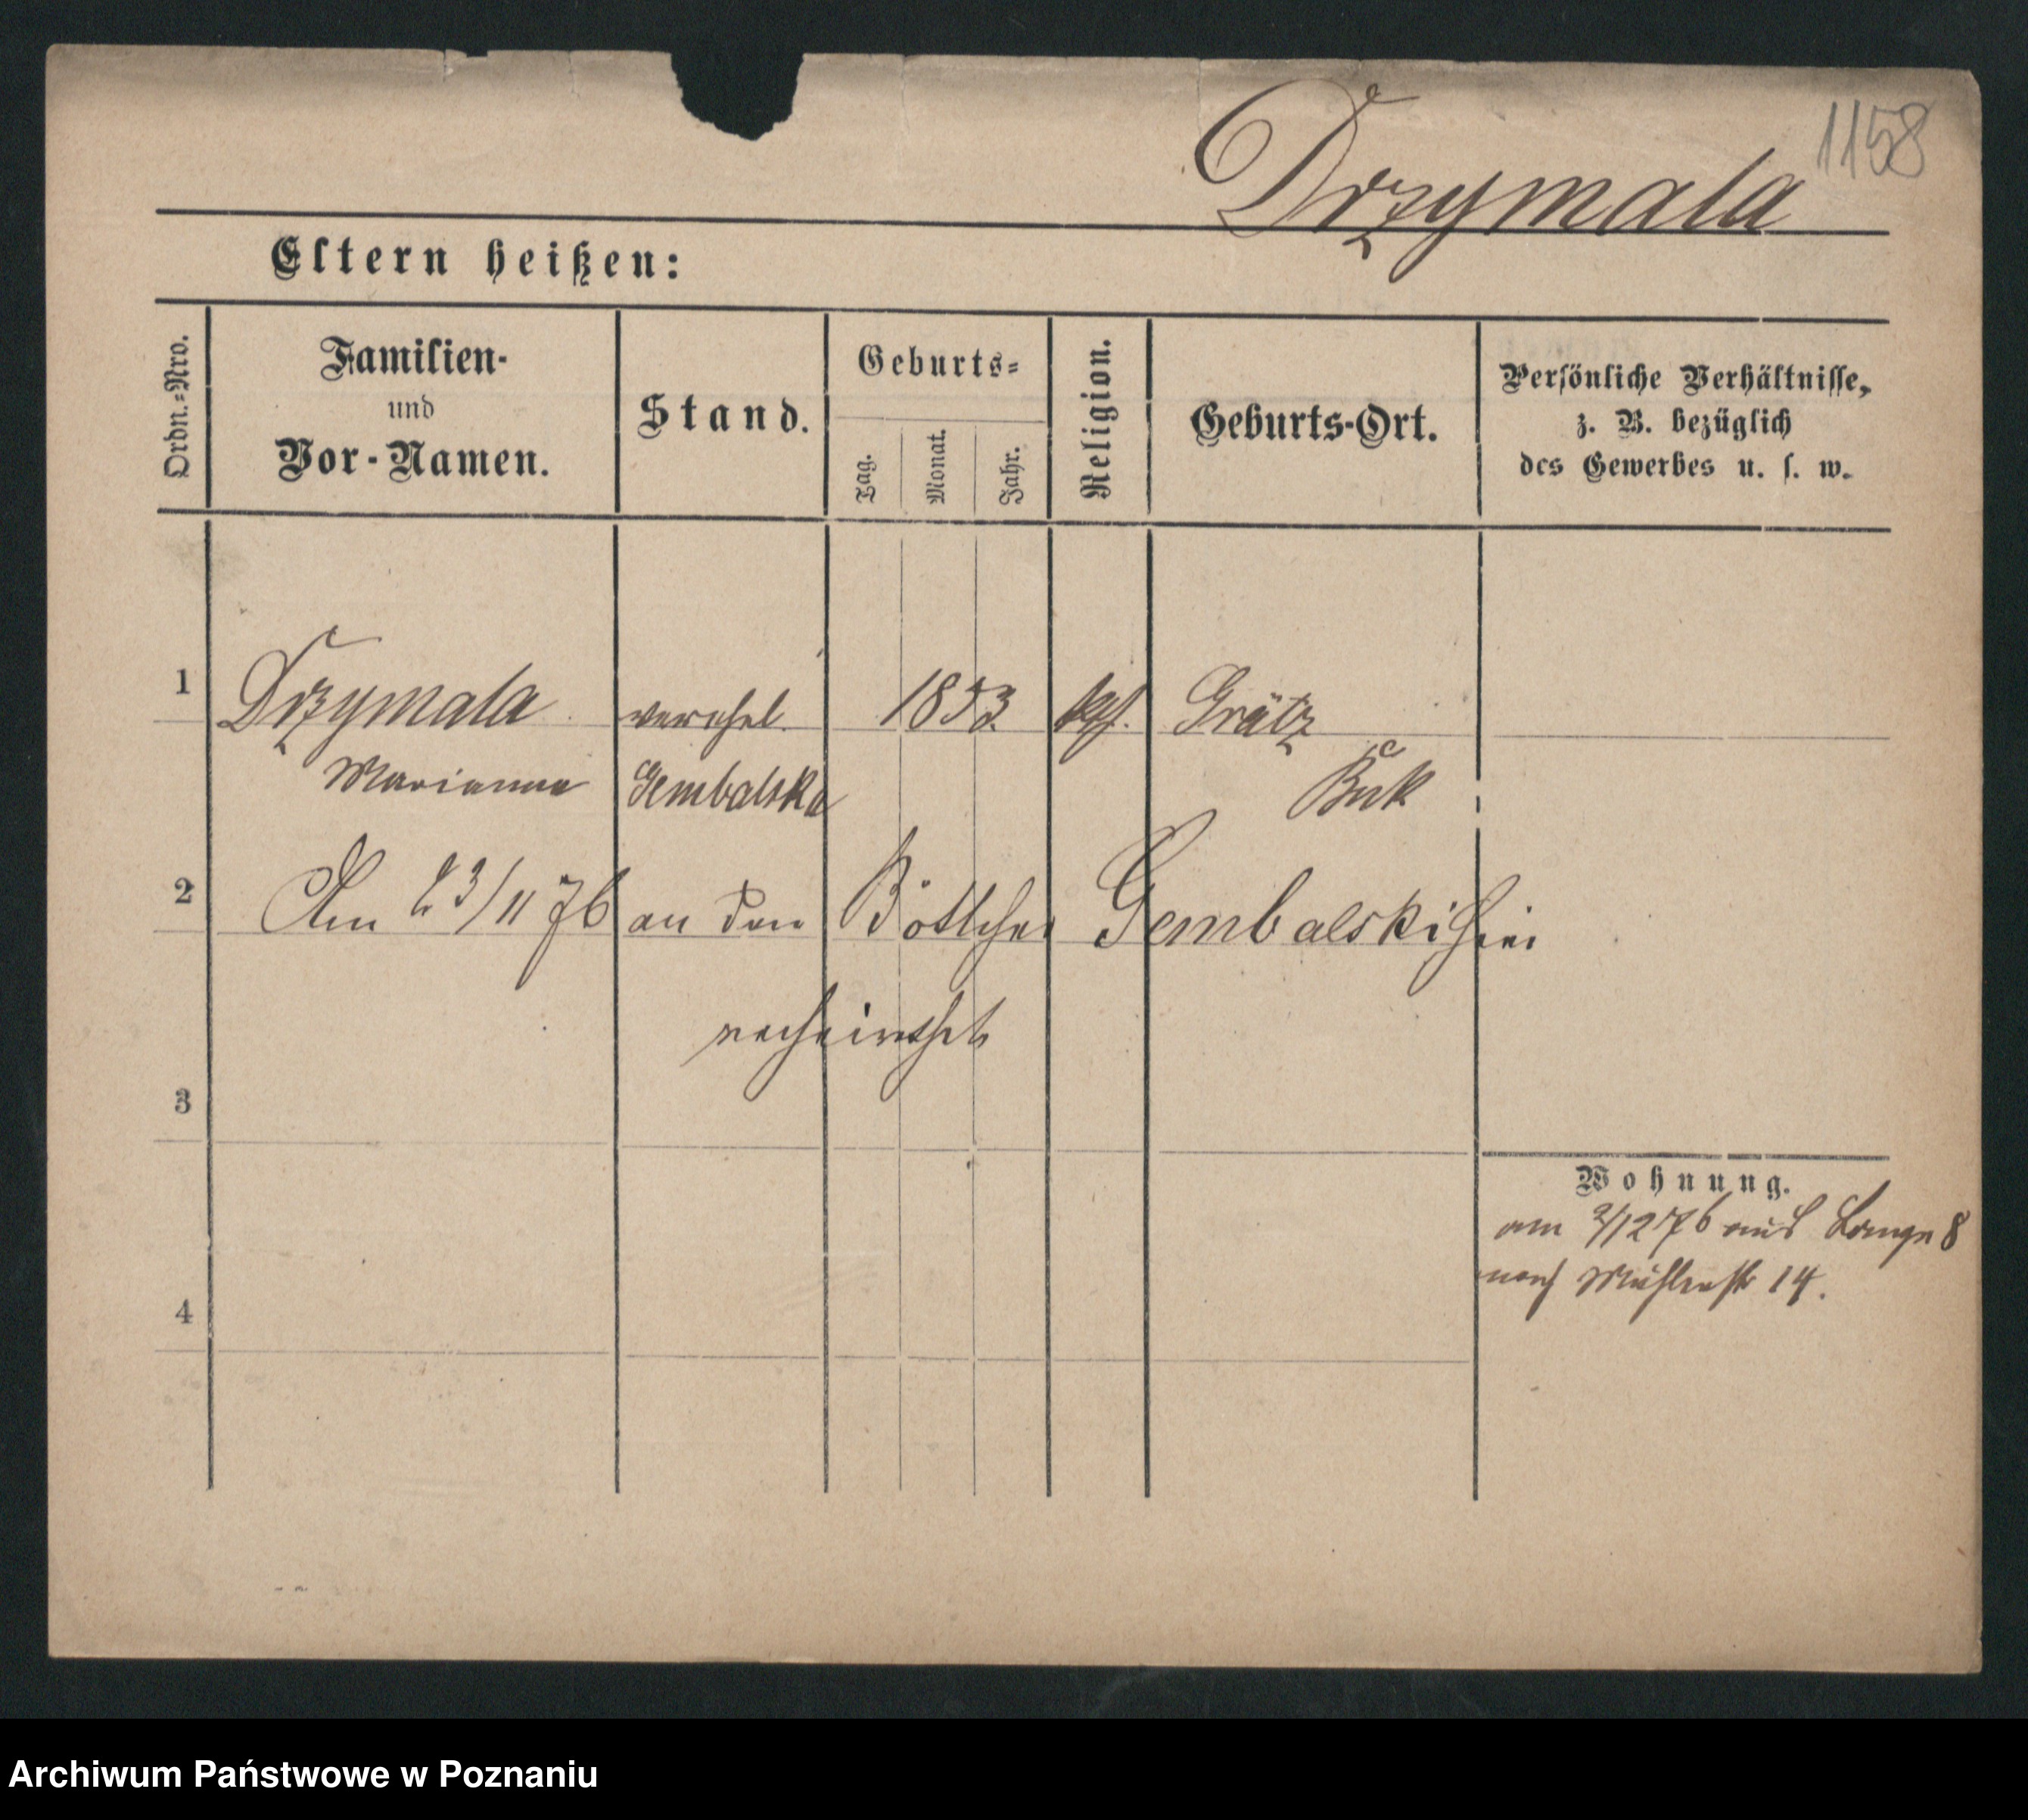 1158
Drzymala
Eltern heißen:
Ordn.-Nro.
Familien-
und
Vor-Namen.
Stand.
Geburts-
Tag.
Monat.
Jahr.
Religion.
Geburts-Ort.
Persönliche Verhältnisse,
z. B. bezüglich
des Gewerbes u. s. w.
1 Drzymala verehel. 1853 kath. Grätz
Marianna Gembalska Buk
2 Am 23/11 76 an den Böttcher Gembalski hier
verheirathet
3
Wohnung.
am 2/12 76 aus Lange 8
nach Mühlenstr 14.
4
Archiwum Państwowe w Poznaniu